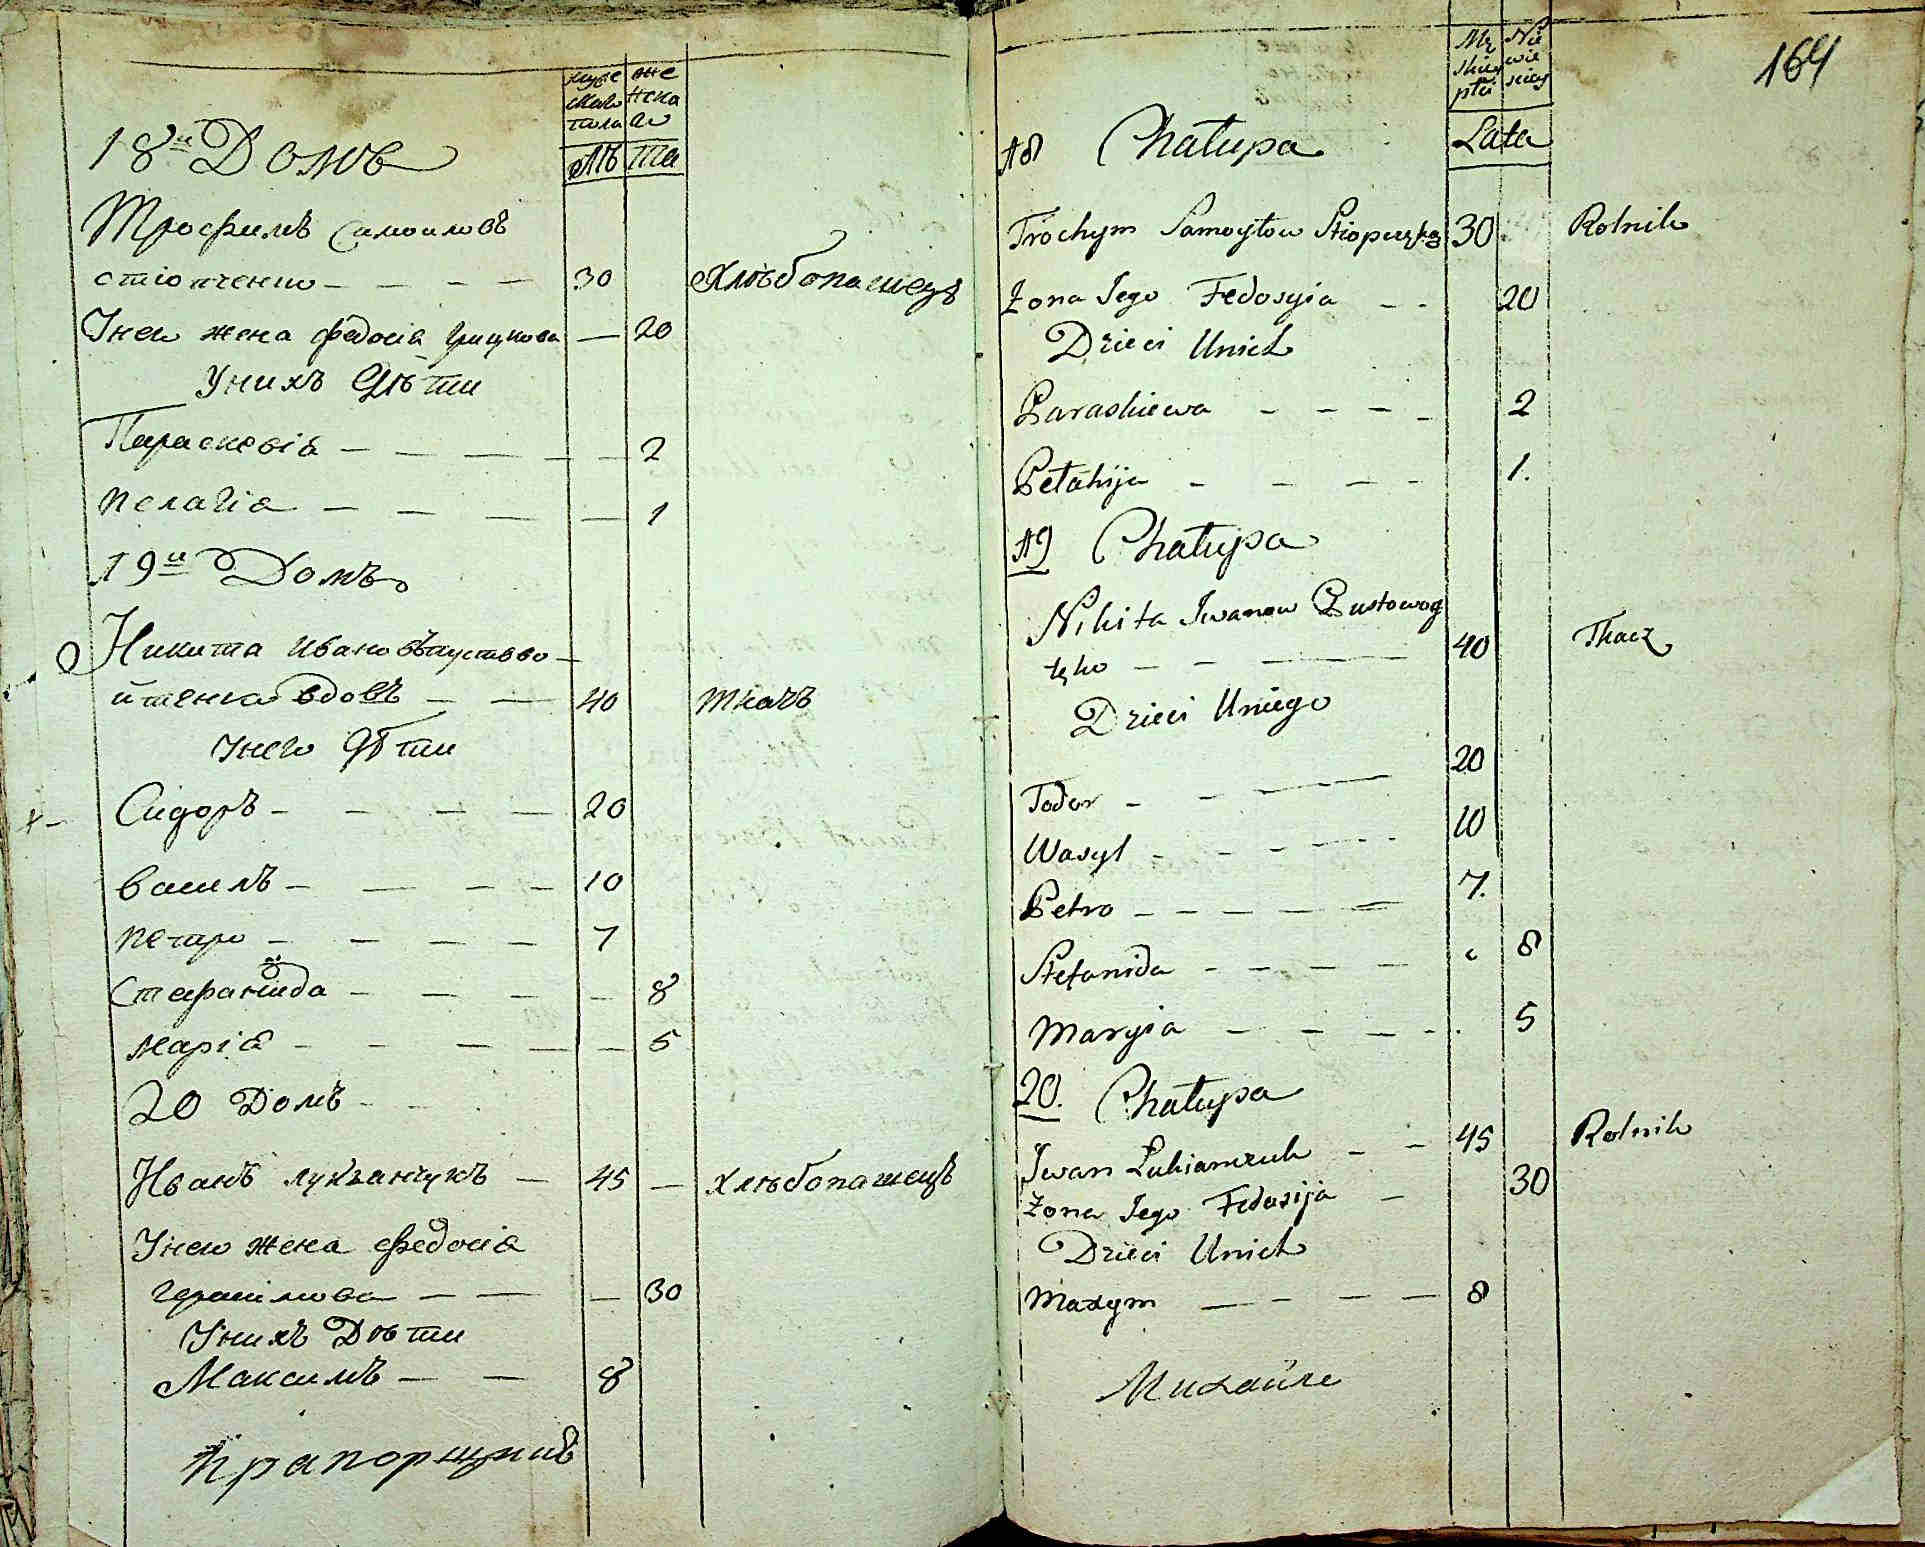 муже
скаго
пола
же
нска
го
Лѣта
18й Домъ
Трофимъ Самоиловъ
стіопченко — — — — 30 Хлѣбопашецъ
Унего жена федосіа Грицкова — 20
Унихъ Дѣти
Параскевіа — — — — — 2
пелагіа — — — — — 1
19й Домъ
Никита Ивановъ пустово-
йтенко вдовъ — — 40 ткачъ
Унего Дѣти
Сидоръ — — — — 20
василъ — — — — 10
петро — — — — 7
Стефанида — — — — 8
маріа — — — — — 5
20 Домъ
Иванъ лукъанчукъ — 45 — хлѣбопашецъ
Унего жена Федосіа
герасимова — — — 30
Унихъ Дѣти
Максимъ — — 8
прапорщикъ
164
Mę
skiey
płci
Nie
wie
sciey
Lata
18 Chałupa
Trochym Samoyłow Stiopczęko 30 Rolnik
Żona Jego Fedosyia - - 20
Dzieci Unich
Paraskiewa - - - - 2
Pełahija - - - - 1.
19 Chałupa
Nikita Iwanow Pustowoy
tęko — — — — 40 Tkacz
Dzieci Uniego
Todor - - - — 20
Wasyl - - - - - 10
Petro - - - - — 7.
Stefanida - - - - 8
Maryia - - - - - 5
20. Chałupa
Iwan Łukianczuk - - 45 Rolnik
Żona Jego Fedosija - 30
Dzieci Unich
Maxym — - - — 8
Михайле